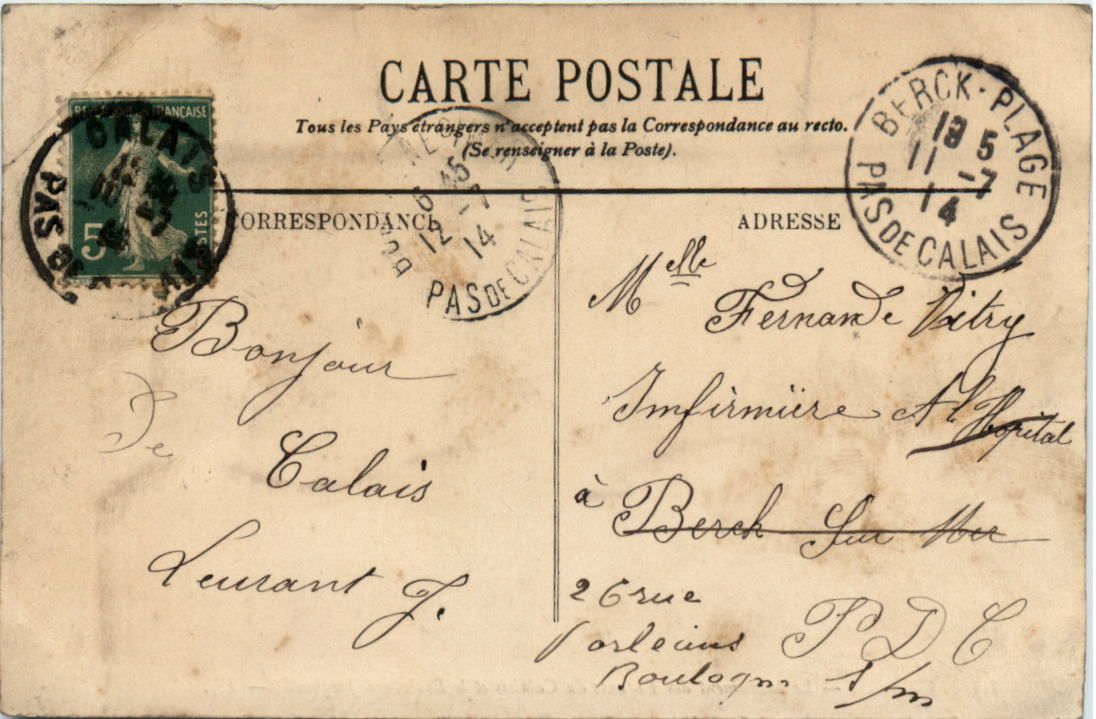 CARTE POSTALE
Tous les Pays étrangers n'acceptent pas la Correspondance au recto.
(Se renseigner à la Poste).
CORRESPONDANCE
ADRESSE
FRANÇAISE
5
POSTES
CALAIS
PAS DE
6 45
12 -7
14
PAS DE CALAIS
BERCK-PLAGE
5
11 -7
14
PAS DE CALAIS
Bonjour
De
Calais
Leurant J.
Melle Fernande Vitry
Infirmière A l'Hopital
à Berck Sur Mer
26 rue P D C
Boulogne s/m